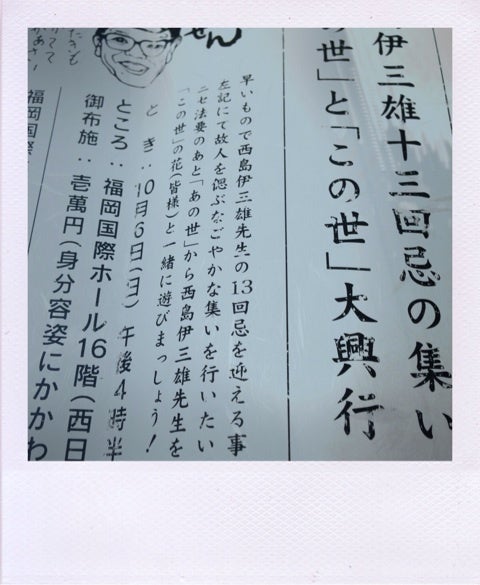 伊三雄十三回忌の集い
の世」と「この世」大興行
せん
早いもので西島伊三雄先生の13回忌を迎える事
左記にて故人を偲ぶなごやかな集いを行いたい
ニセ法要のあと「あの世」から西島伊三雄先生を
「この世」の花(皆様)と一緒に遊びまっしょう!
とき:10月6日(日)午後4時半
ところ:福岡国際ホール16階(西日
御布施:壱萬円(身分容姿にかかわ
福岡国際